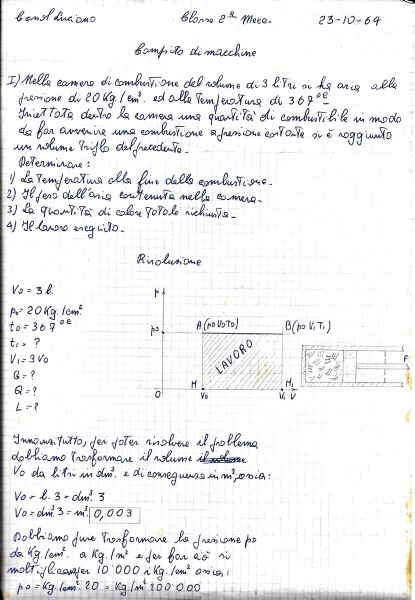 Conat Luciano Classe 2ª Mecc. 23-10-64
Compito di macchine
I) Nella camera di combustione del volume di 3 litri si ha aria alla
pressione di 20 Kg./cm². ed alla temperatura di 367°C
Iniettata dentro la camera una quantità di combustibile in modo
da far avvenire una combustione a pressione costante si è raggiunto
un volume triplo del precedente.
Determinare:
1) La temperatura alla fine della combustione.
2) Il peso dell'aria contenuta nella camera.
3) La quantità di calore totale richiesta.
4) Il lavoro eseguito.
Risoluzione
V0 = 3 l.
p0 = 20 Kg./cm²
t0 = 367°C
t1 = ?
V1 = 3V0
G = ?
Q = ?
L = ?
p
p0
A(p0V0T0)
B(p0V1T1)
LAVORO
F
O
M
V0
V1
M1
V
Innanzitutto, per poter risolvere il problema
dobbiamo trasformare il volume
V0 da litri in dm³. e di conseguenza in m³, ossia:
V0 = l. 3 = dm³. 3
V0 = dm³. 3 = m³. 0,003
Dobbiamo pure trasformare la pressione p0
da Kg./cm². a Kg./m² e per far ciò si
moltiplicano per 10'000 i Kg./cm². ossia:
p0 = Kg./cm². 20 = Kg./m² 200'000